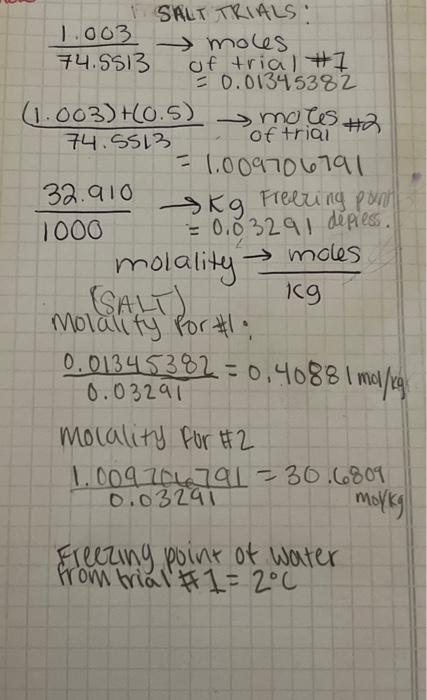 SALT TRIALS:
1.003 → moles
74.5513 of trial #1
= 0.01345382
(1.003)+(0.5) → moles #2
74.5513 of trial
= 1.009706791
32.910 → Kg Freezing point
1000 = 0.03291 depress.
molality → moles
Kg
(SALT)
Molality for #1:
0.01345382 = 0.40881 mol/kg
0.03291
Molality for #2
1.009706791 = 30.6809
0.03291 mol/kg
Freezing point of water
from trial #1 = 2°C